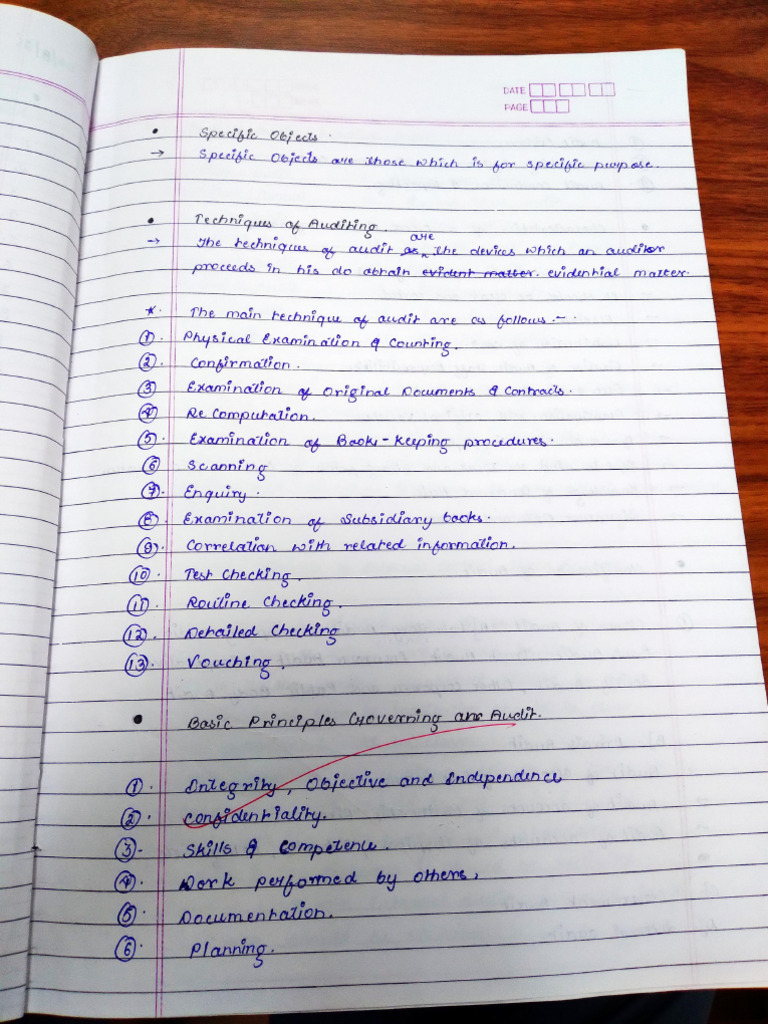 DATE
PAGE
• Specific Objects.
→ Specific Objects are those which is for specific purpose.
• Techniques of Auditing.
→ The techniques of audit are the devices which an auditor
proceeds in his do obtain evident matter. evidential matter.
* The main technique of audit are as follows :-
① Physical Examination & Counting.
② Confirmation.
③ Examination of Original Documents & Contracts.
④ Re Computation.
⑤ Examination of Book-Keeping procedures.
⑥ Scanning
⑦ Enquiry.
⑧ Examination of Subsidiary books.
⑨ Correlation with related information.
⑩ Test Checking.
⑪ Routine Checking.
⑫ Detailed Checking
⑬ Vouching.
• Basic Principles Governing an Audit.
① Integrity, Objective and Independence
② Confidentiality.
③ Skills & Competence.
④ Work performed by others,
⑤ Documentation.
⑥ Planning.